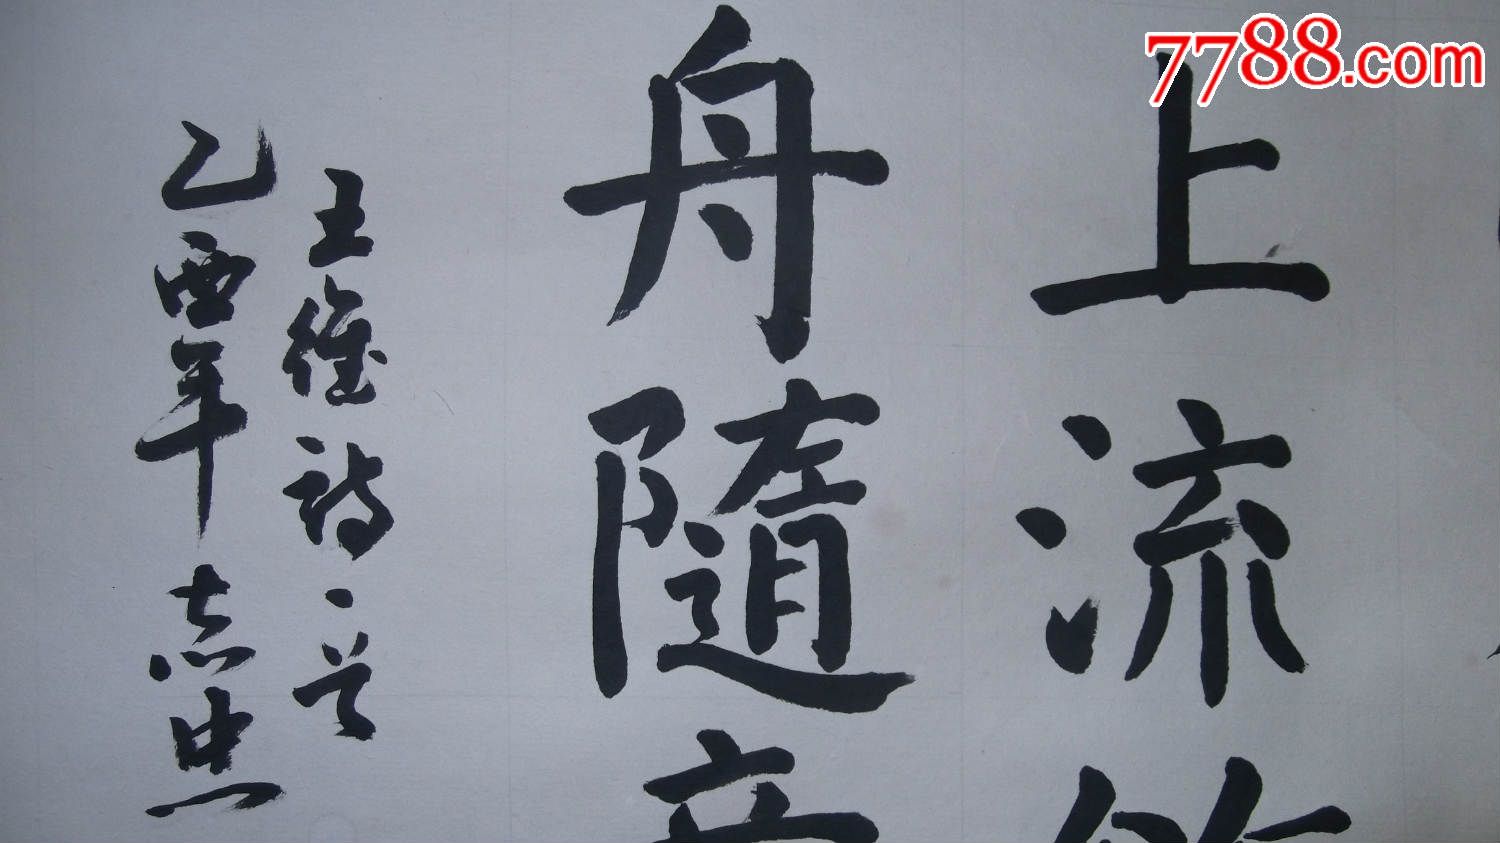 7788.com
上流
舟隨意
王維詩一首
乙酉年志忠